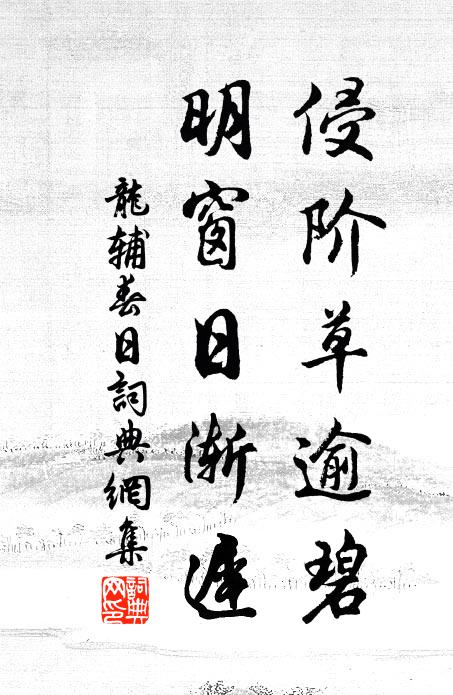 侵阶草逾碧
明窗日渐遲
龍辅春日詞典網集
詞典网印